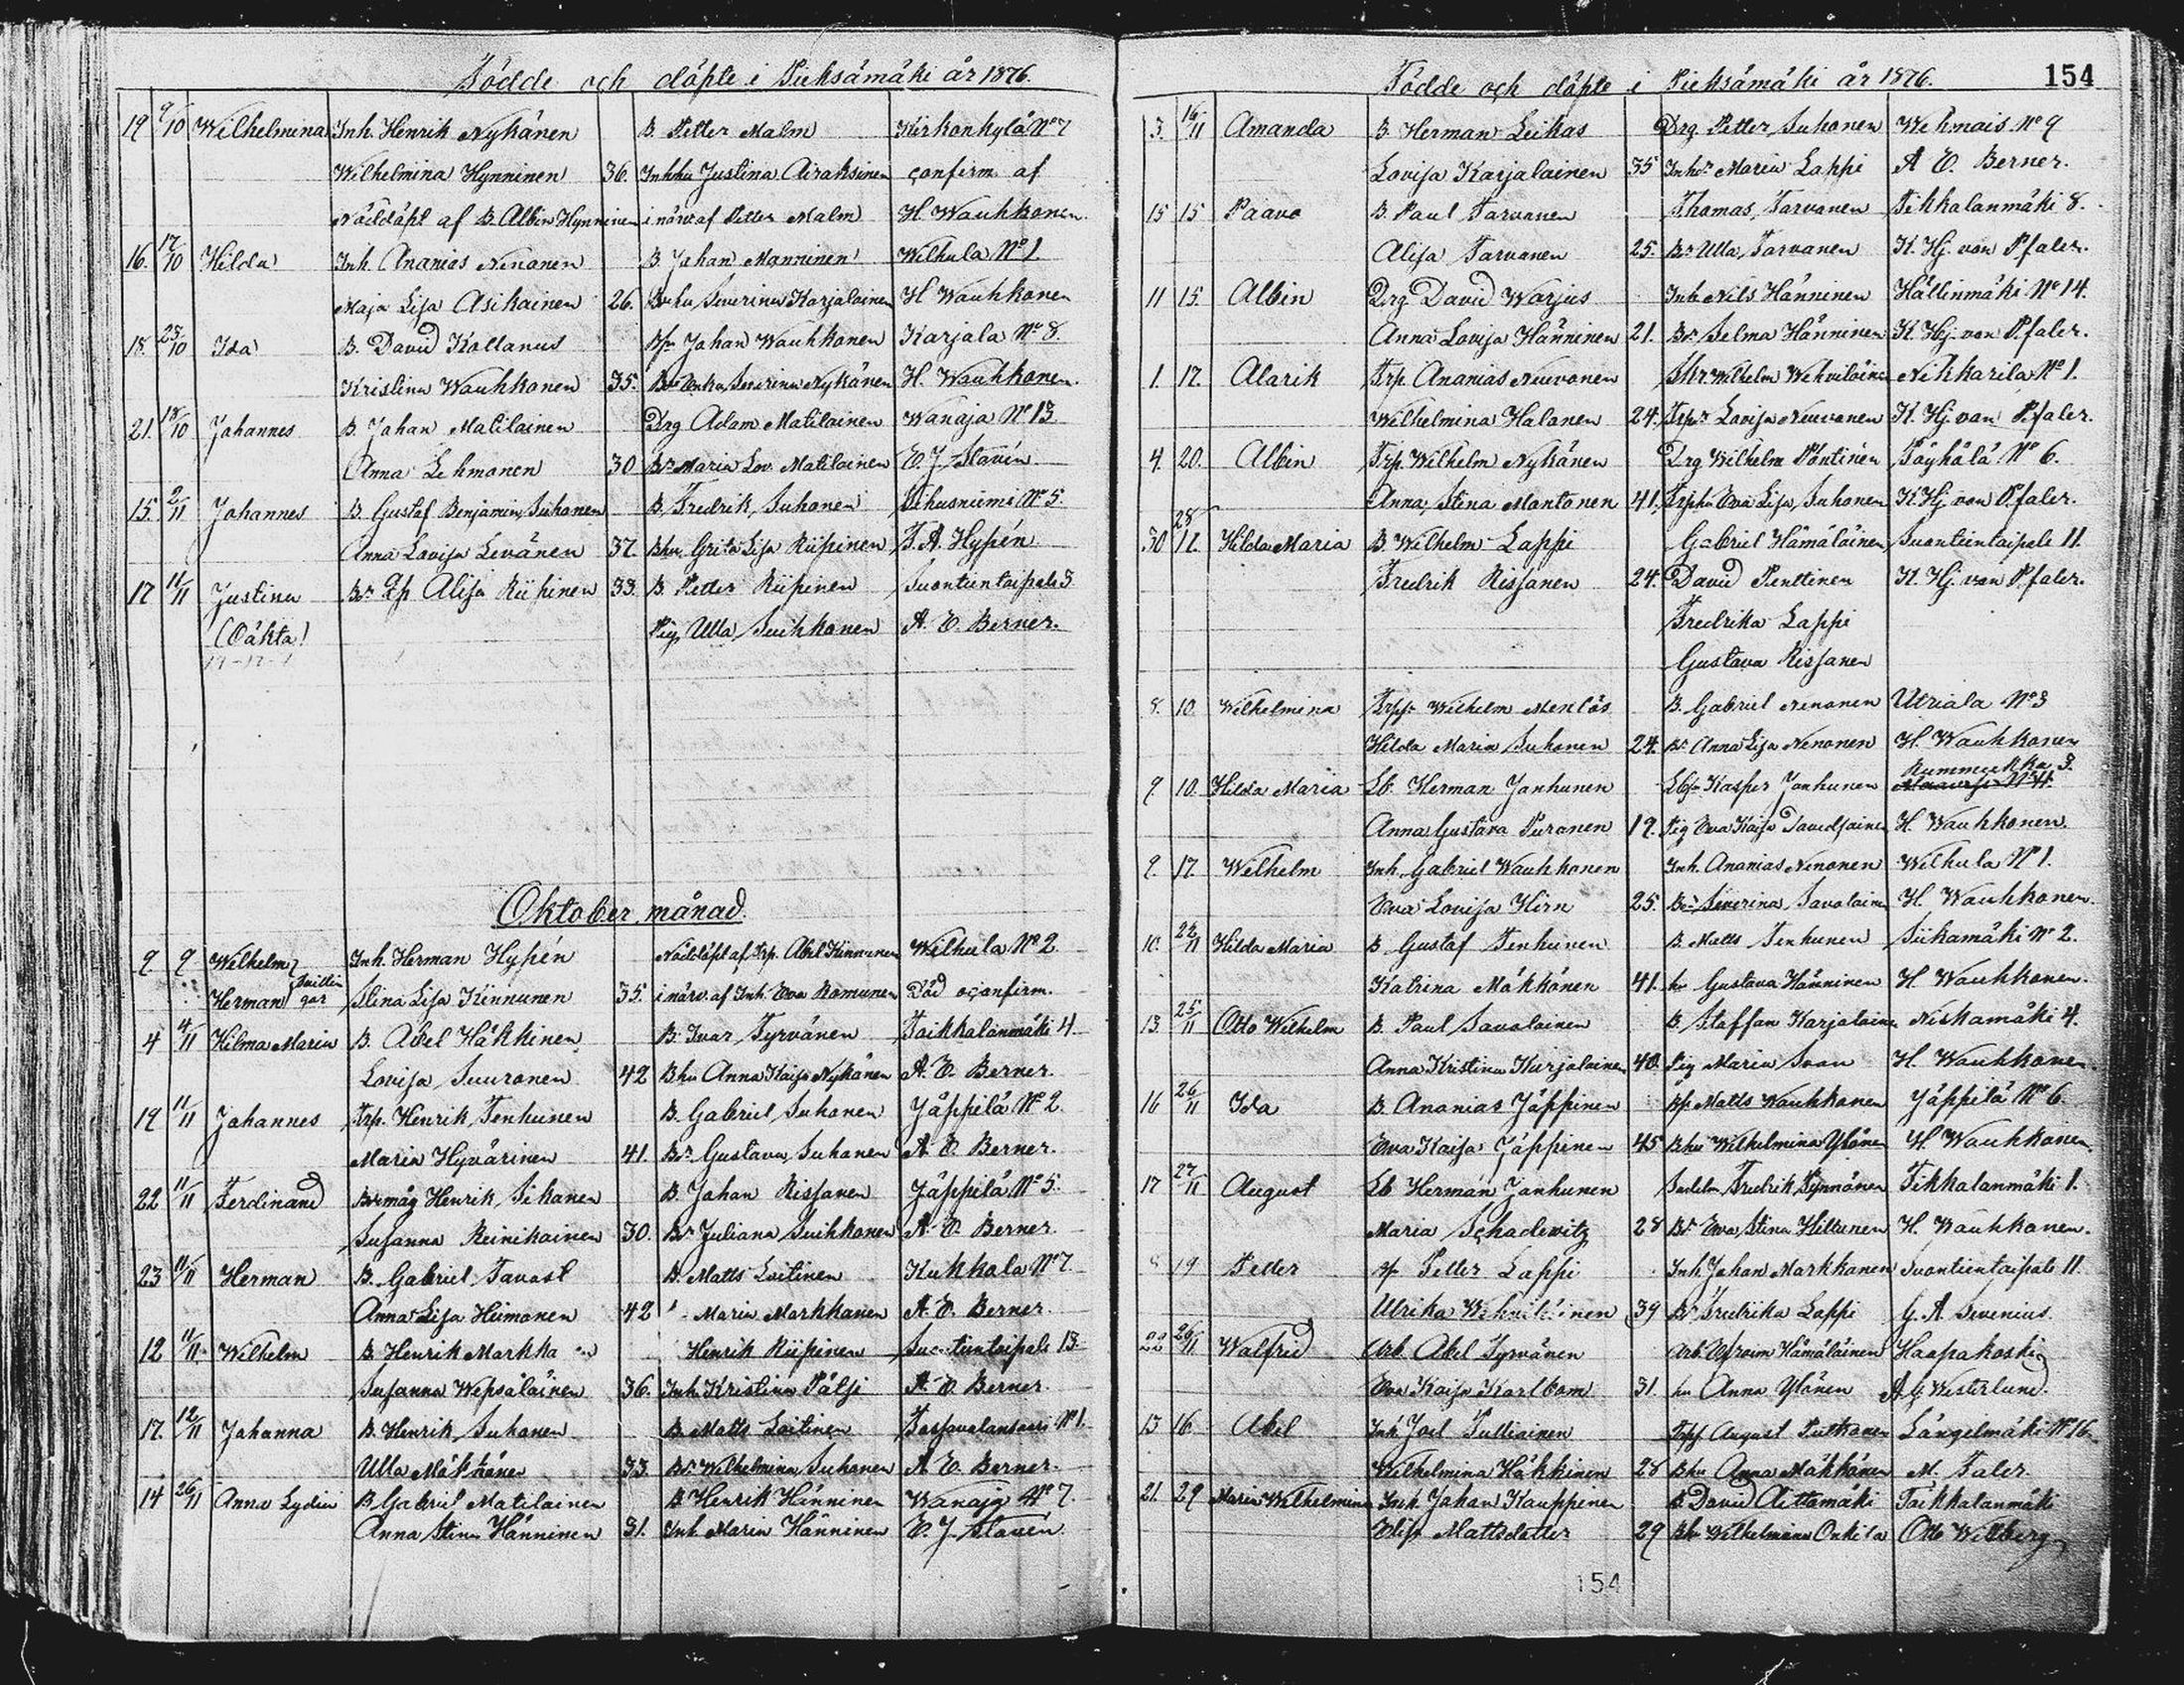 Födde och döpte i Pieksämäki år 1876.
19 9/10 Wilhelmina Inh. Henrik Nykänen B. Petter Malm Kirkonkylä No 7
Wilhelmina Hynninen 36. Inhhu Justina Airaksinen confirm. af
Nöddöpt af B. Albin Hynninen i närv. af Petter Malm H. Wauhkonen.
16. 17/10 Hilda Inh. Ananias Nenonen B. Johan Manninen Wilhula No 1.
Maja Lisa Asikainen 26. Bhu Severina Karjalainen H Wauhkonen
18. 23/10 Ida B. David Kollanus Johan Wauhkonen Karjala No 8.
Kristina Wauhkonen 35. Severina Nykänen H. Wauhkonen.
21. 18/10 Johannes B. Johan Matilainen Drg Adam Matilainen Wanaja No 13
Anna Lehmonen 30 Bdr Maria Lov. Matilainen E. J. Slavén
15. 2/11 Johannes B. Gustaf Benjamin Suhonen B. Fredrik Suhonen Sihusniemi No 5.
Anna Lovisa Levänen 37. Bhu. Greta Lisa Riipinen F. A. Hypén
17 11/11 Justina Bdr Alisa Riipinen 33. B. Petter Riipinen Suontientaipale 3
(Oäkta) Pig Ulla Suihkonen A. E. Berner.
Oktober månad.
9. 9 Wilhelm Inh. Herman Hypén Nöddöpt af Trp. Abel Kinnunen Wilhula No 2
Herman Tvillingar Stina Lisa Kinnunen 35. i närv. af Inh. Eva Romunen Död oconfirm.
4 4/11 Hilma Maria B. Abel Häkkinen B. Ivar Tyrvänen Paikkalanmäki 4
Lovisa Suuronen 42 Bhu Anna Kaisa Nykänen A. E. Berner.
19 11/11 Johannes Trp. Henrik Tenhunen B. Gabriel Suhonen Jäppilä No 2.
Maria Hyvärinen 41. Bdr Gustava Suhonen A. E. Berner.
22 11/11 Ferdinand Bmåg Henrik Sikanen B. Johan Rissanen Jäppilä No 5.
Susanna Reinikainen 30. Bdr Juliana Suihkonen A. E. Berner
23 11/11 Herman B. Gabriel Tavast B. Matts Laitinen Kukkola No 7
Anna Lisa Heimonen 42 Maria Markkanen A. E. Berner.
12 11/11 Wilhelm B. Henrik Markka Henrik Riipinen Suontientaipale 13
Susanna Wepsäläinen 36. Inh Kristina Pätsi A. E. Berner.
17. 12/11 Johanna B. Henrik Suhonen B. Matts Laitinen No 1.
Ulla Mökkönen 33. Bdr Wilhelmina Suhonen A. E. Berner.
14 26/11 Anna Lydia B Gabriel Matilainen B Henrik Hänninen Wanaja No 7.
Anna Stina Hänninen 31. Inh Maria Hänninen E. J. Slavén.
Födde och döpte i Pieksämäki år 1876. 154
3. 16/11 Amanda B. Herman Leikas Drg Petter Suhonen Wehmais No 9
Lovisa Karjalainen 35 Inhdr Maria Lappi A E. Berner.
15 15 Paavo B. Paul Tarvanen Thomas Tarvanen Pikkalanmäki 8.
Alisa Tarvanen 25. Bdr Ulla Tarvanen K. Hj. von Pfaler.
11 15. Albin Drg David Warjus Inh Nils Hänninen Hällinmäki No 14.
Anna Lovisa Hänninen 21. Bdr Selma Hänninen K Hj. von Pfaler.
1. 17. Alarik Trp. Ananias Neuvonen Wilhelm Wehviläinen Nikkarila No 1.
Wilhelmina Halonen 24. Trpdr Lovisa Neuvonen K. Hj. von Pfaler.
4. 20. Albin Trp. Wilhelm Nykänen Drg Wilhelm Pöntinen Pöyhölä No 6.
Anna Stina Montonen 41. Trphu Eva Lisa Suhonen K. Hj. von Pfaler.
30 28/12. Hilda Maria B. Wilhelm Lappi Gabriel Hämäläinen Suontientaipale 11.
Fredrik Rissanen 24. David Penttinen K. Hj. von Pfaler.
Fredrika Lappi
Gustava Rissanen
8. 10 Wilhelmina Wilhelm Menlös B. Gabriel Nenonen Utriala No 3
Hilda Maria Suhonen 24. Bdr Anna Lisa Nenonen H. Wauhkonen
9. 10. Hilda Maria Lb. Herman Janhunen Kasper Janhunen Rummukka 3.
Anna Gustava Puronen 19. Pig Eva Kaisa Davidsainen H. Wauhkonen.
9. 17. Wilhelm Inh. Gabriel Wauhkonen Inh. Ananias Nenonen Wilhula No 1.
Eva Lovisa Hirn 25. Severina Savolainen H. Wauhkonen.
10. 22/11 Hilda Maria B Gustaf Tenhunen B. Matts Tenhunen Siikamäki No 2.
Katrina Mökkönen 41. hu Gustava Hänninen H. Wauhkonen.
13. 25/11 Otto Wilhelm B. Paul Savolainen B. Staffan Karjalainen Niskamäki 4.
Anna Kristina Karjalainen 40. Pig Maria H. Wauhkonen.
16 26/11 Ida B. Ananias Jäppinen Matts Wauhkonen Jäppilä No 6
Eva Kaisa Jäppinen 45 Bhu Wilhelmina Ylönen H. Wauhkonen.
17 27/11 August Lb Herman Janhunen Fredrik Pynnönen Tikkalanmäki 1.
Maria Schadewitz 28 Bdr Eva Stina Hiltunen H. Wauhkonen.
8 19 Petter Petter Lappi Inh Johan Markkanen Suontientaipale 11.
Ulrika Wehviläinen 39 Bdr Fredrika Lappi G. A. Sevenius.
22 26/11 Walfrid Arb. Abel Tyrvänen Arb. Efraim Hämäläinen Haapakoski
Eva Kaisa Karlbom 31. hu Anna Ylönen A. G. Westerlund.
13 16. Abel Inh Joel Tulliainen August Putkonen Längelmäki No 16.
Wilhelmina Häkkinen 28 Bhu Anna Mökkönen M. Faler.
21. 29 Maria Wilhelmina Inh. Johan Kauppinen B David Aittamäki Paikkalanmäki
Elisa Mattsdotter 29 Bhu Wilhelmina Onkila Otto Willberg
154